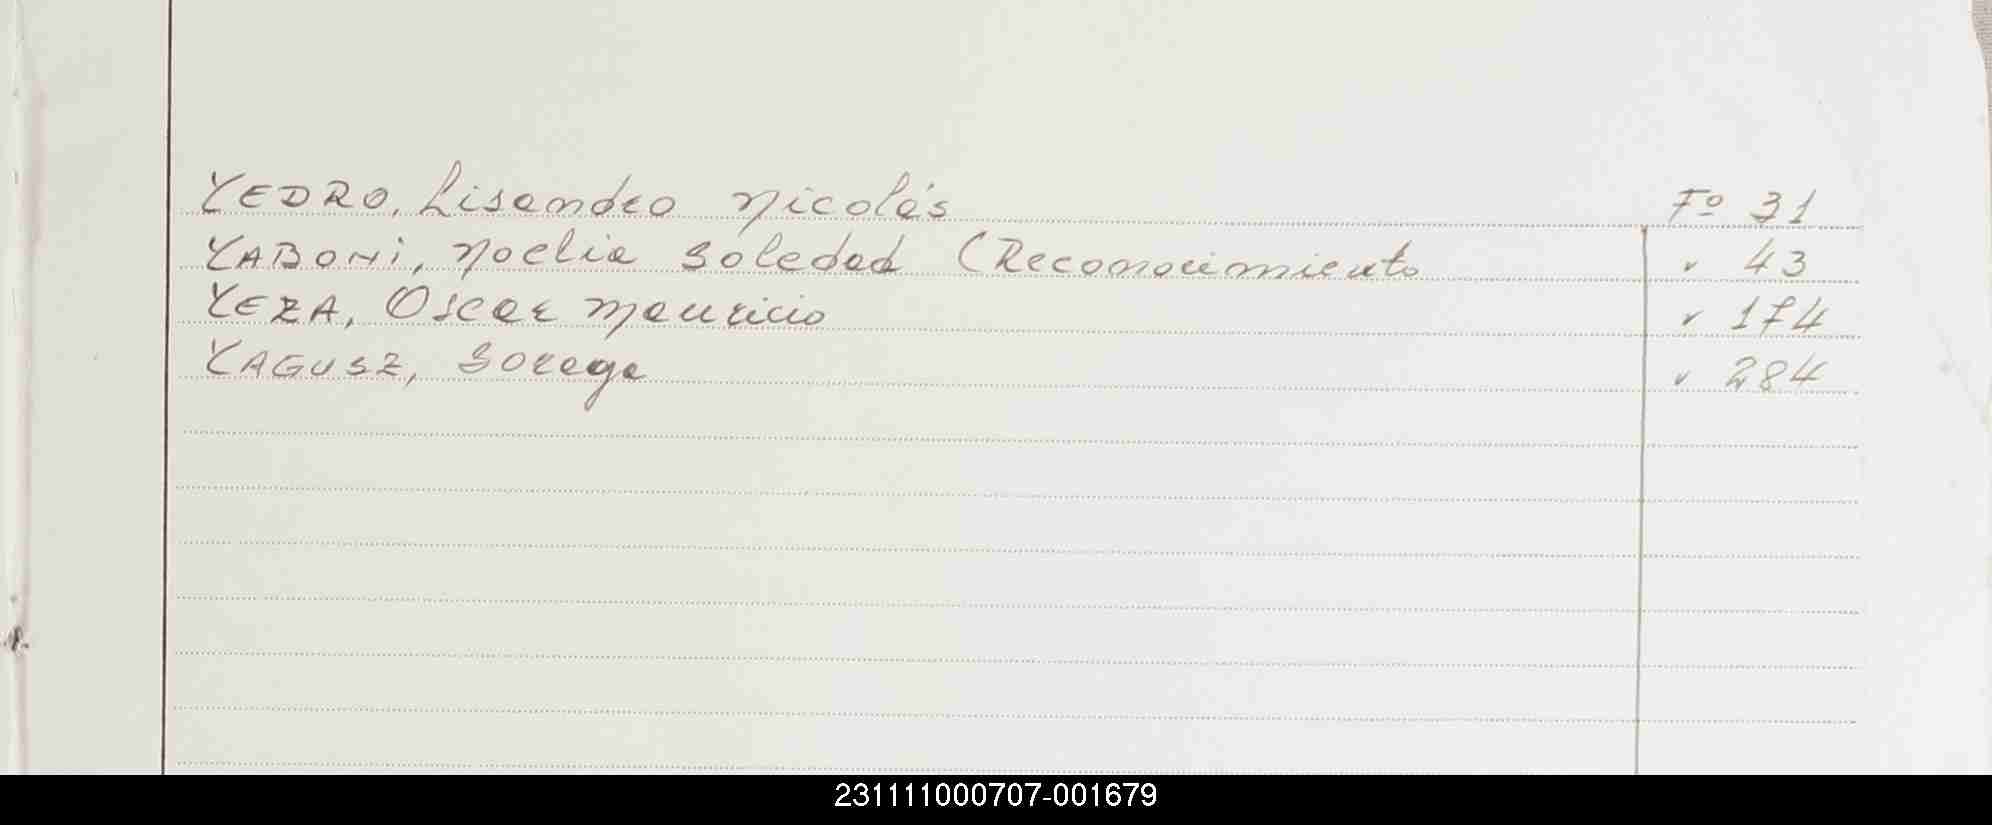 YEDRO, Lisandro Nicolás Fº 31
YABONi, Noelia Soledad (Reconocimiento " 43
YEZA, Oscar Mauricio " 174
YAGUSZ, " 284
231111000707-001679